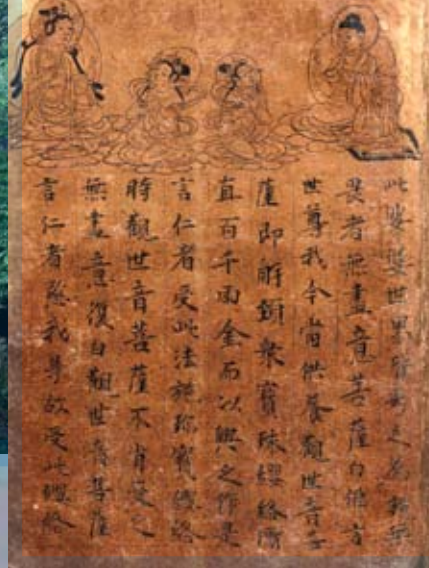 此娑婆世界皆号之為施無
畏者無盡意菩薩白佛言
世尊我今當供養觀世音菩
薩即解頸衆寶珠纓絡價
直百千兩金而以與之作是
言仁者受此法施珎寶纓絡
時觀世音菩薩不肯受之
無盡意復白觀世音菩薩
言仁者愍我等故受此纓絡